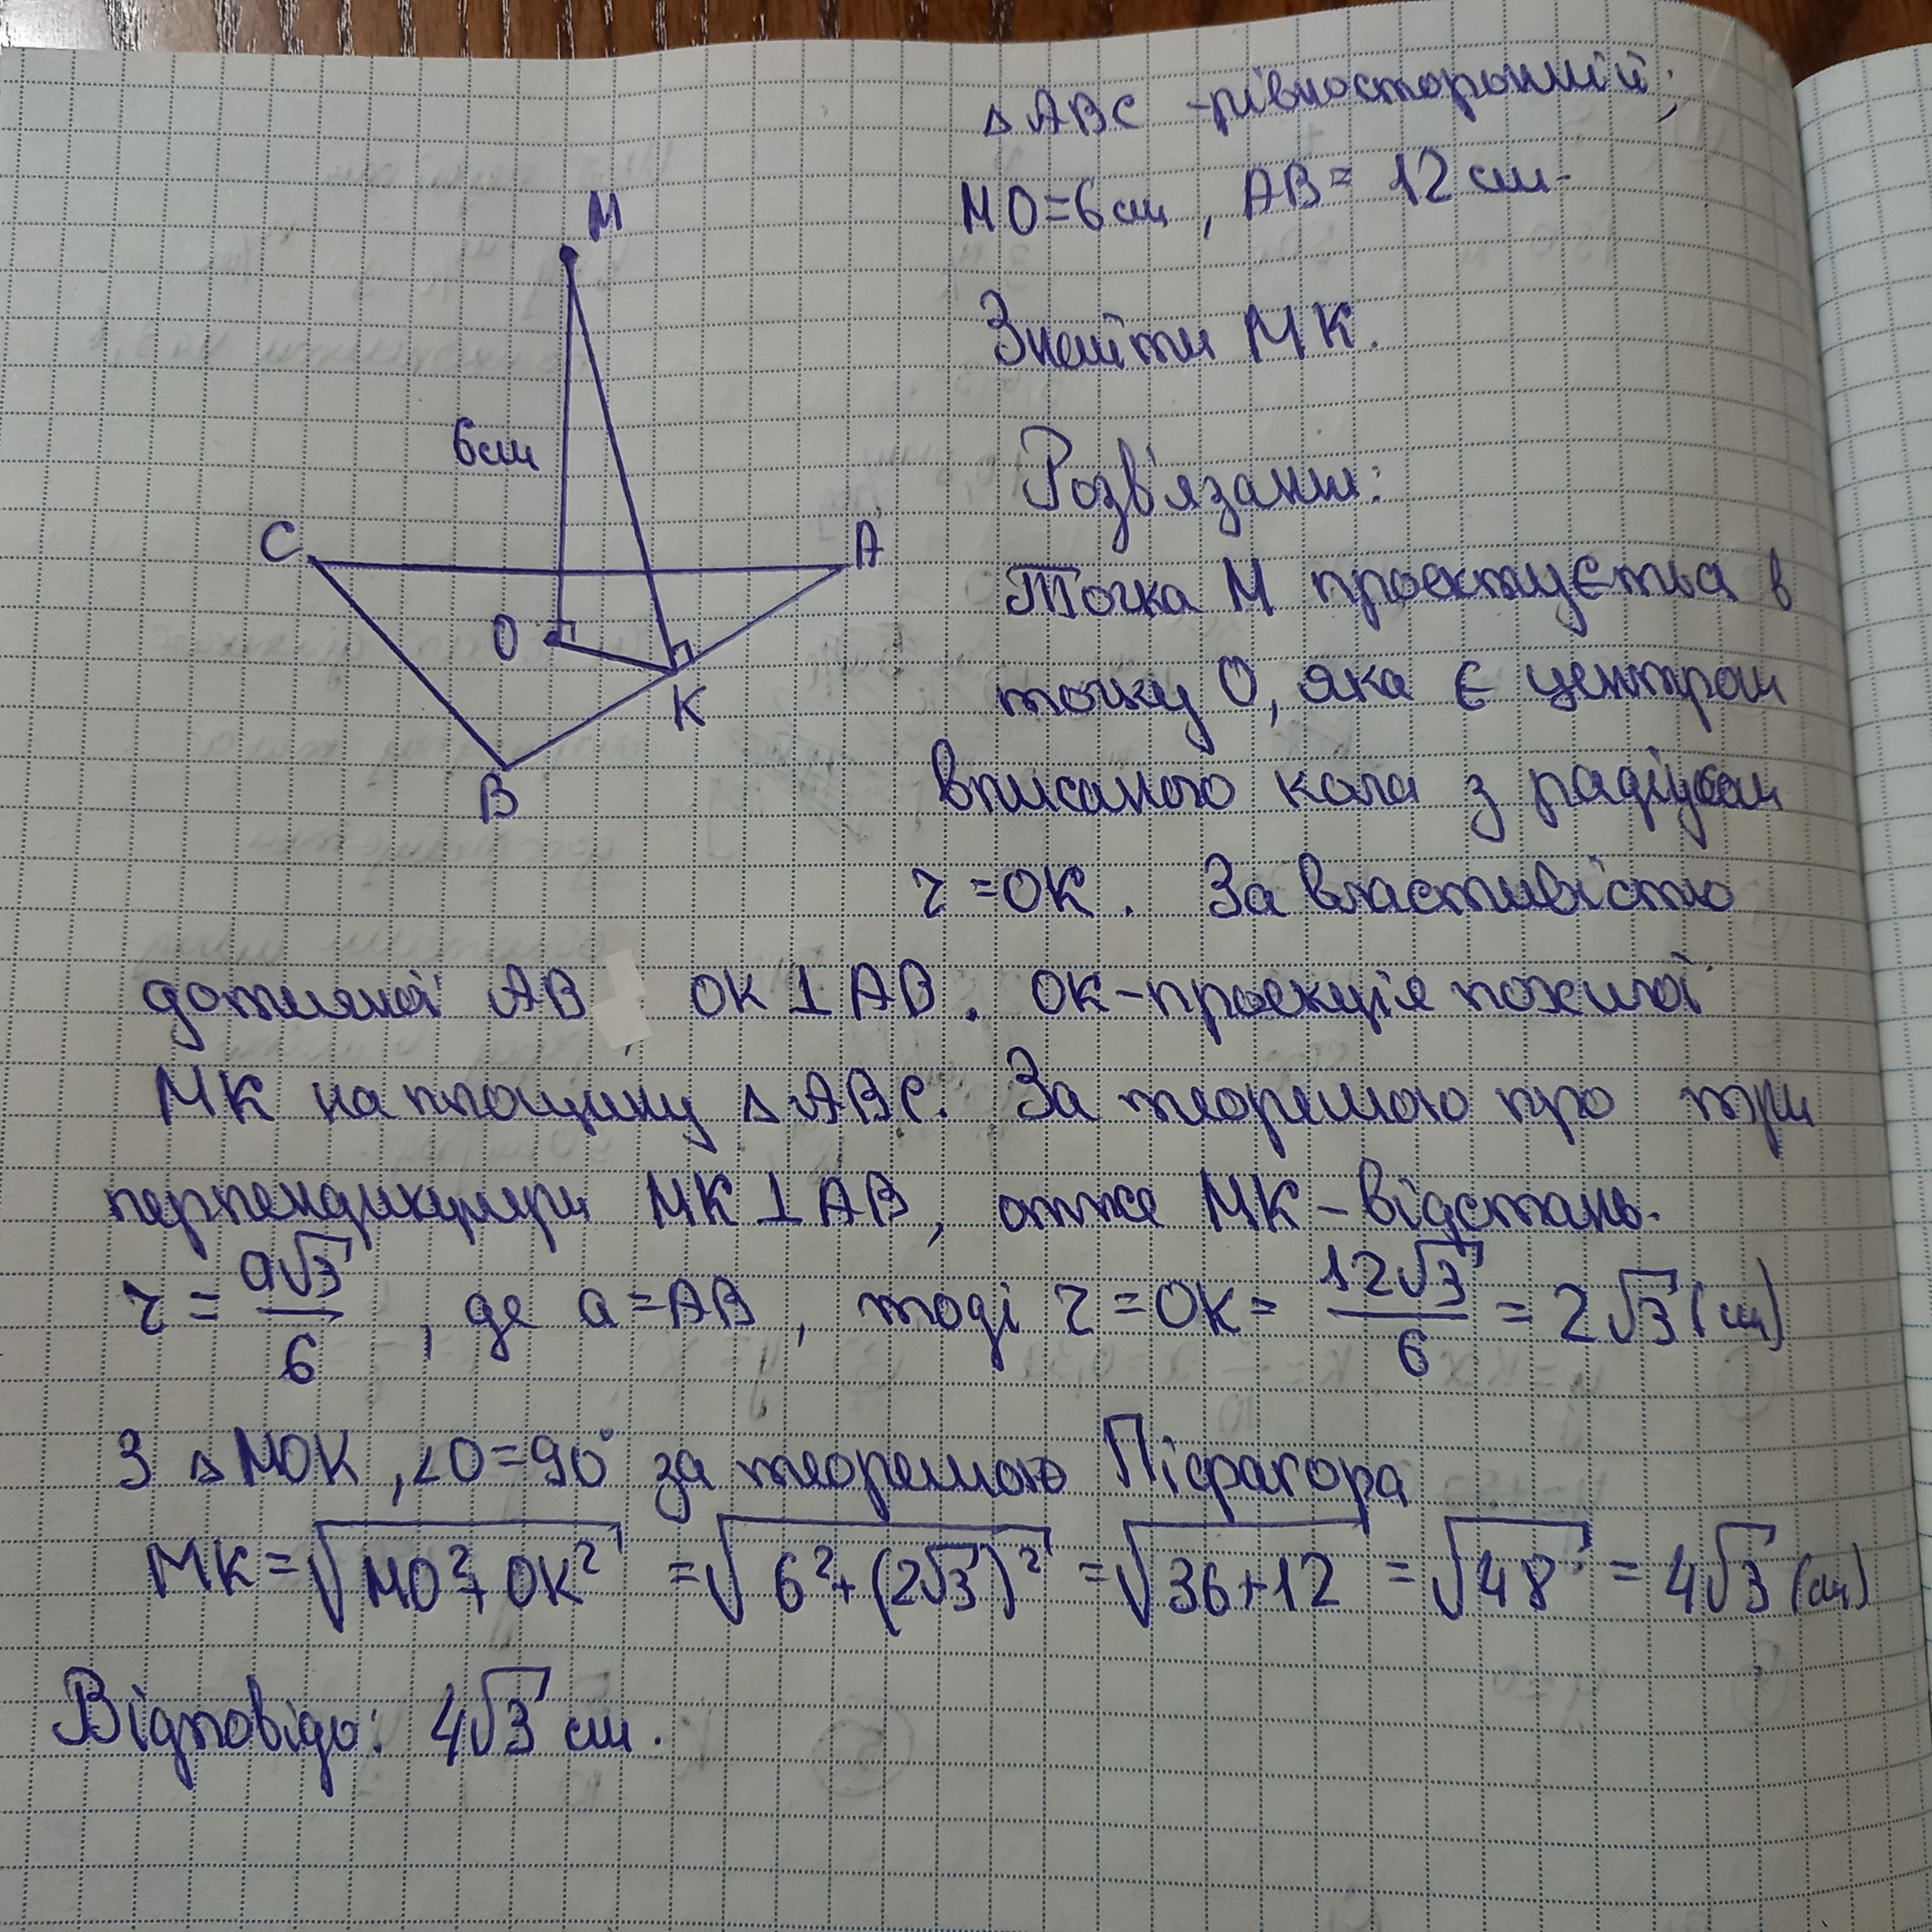 △ ABC - рівносторонній;
MO=6см, AB= 12 см.
M
Знайти MK.
6см
Розв'язання:
C
A
Точка M проектується в
O
точку O, яка є центром
K
B
вписаного кола з радіусом
r =OK. За властивістю
дотичної AB, OK⊥AB. OK-проекція похилої
MK на площину △ ABC. За теоремою про три
перпендикуляри MK⊥AB, отже MK-відстань.
r = a√3/6, де a=AB, тоді r=OK= 12√3/6 = 2√3 (см)
З △ MOK, ∠O=90° за теоремою Піфагора
MK=√MO²+OK² =√6²+(2√3)² =√36+12 =√48 = 4√3 (см)
Відповідь: 4√3 см.